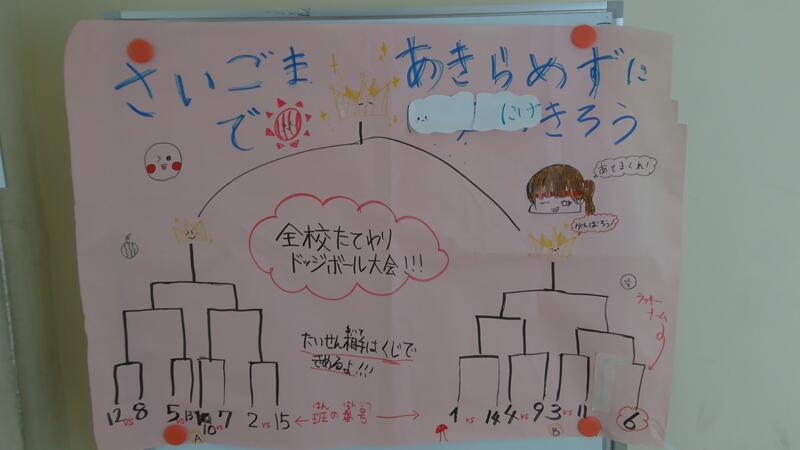 さいごま あきらめずに
で にげきろう
あてまくれ!
がんばろう!
全校たてわり
ドッジボール大会!!!
ラッキー
チーム
たいせん相手はくじで
あいて
きめるよ!!!
12 vs 8 5 vs 13 10 vs 7 2 vs 15
はん ばんごう
←班の番号→
1 vs 14 4 vs 9 3 vs 11 6
A B